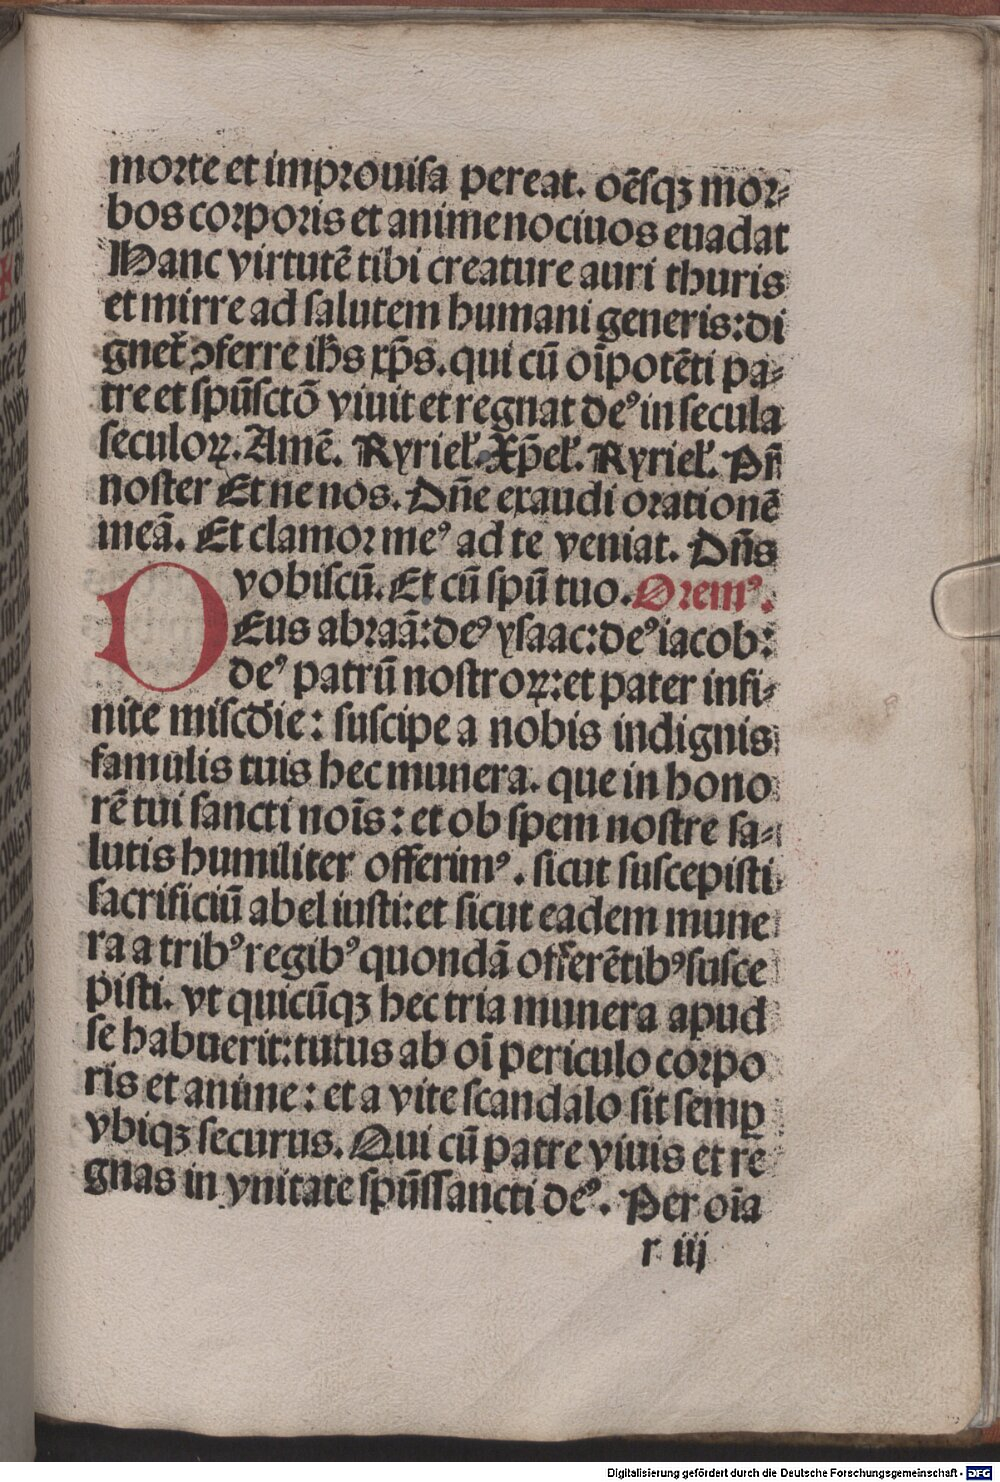 morte et improuiſa pereat. oēſqꝫ mor⸗
bos corporis et anime nociuos euadat
Hanc virtutē tibi creature auri thuris
et mirre ad ſalutem humani generis: di
gnet᷑ ꝯferre ih̄s xp̄s. qui cū oīpotēti pa⸗
tre et ſpūſctō viuit et regnat deꝰ in ſecula
ſeculoꝝ. Amē. Kyrieł. Xp̄eł. Kyrieł. Pr̄
noſter Et ne nos. Dn̄e exaudi orationē
meā. Et clamor meꝰ ad te veniat. Dn̄s
vobiſcū. Et cū ſpū tuo. Oremꝰ.
DEus abraā: deꝰ yſaac: deꝰ iacob:
deꝰ patrū noſtroꝝ: et pater infi⸗
nite miſcdīe: ſuſcipe a nobis indignis
famulis tuis hec munera. que in hono
rē tui ſancti noīs: et ob ſpem noſtre ſa⸗
lutis humiliter offerimꝰ. ſicut ſuſcepiſti
ſacrificiū abel iuſti: et ſicut eadem mune
ra a tribꝰ regibꝰ quondā offerētibꝰ ſuſce
piſti. vt quicūqꝫ hec tria munera apud
ſe habuerit: tutus ab oī periculo corpo
ris et anime: et a vite ſcandalo ſit ſemꝑ
vbiqꝫ ſecurus. Qui cū patre viuis et re
gnas in vnitate ſpūſſancti deꝰ. Per oīa
r iij
Digitalisierung gefördert durch die Deutsche Forschungsgemeinschaft - DFG